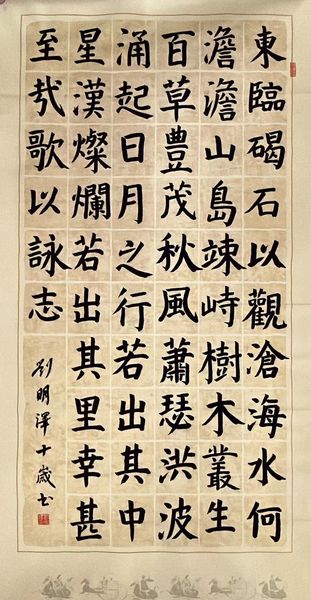 東臨碣石以觀滄海水何
澹澹山島竦峙樹木叢生
百草豊茂秋風蕭瑟洪波
涌起日月之行若出其中
星漢燦爛若出其里幸甚
至哉歌以詠志
刘明澤十歲书